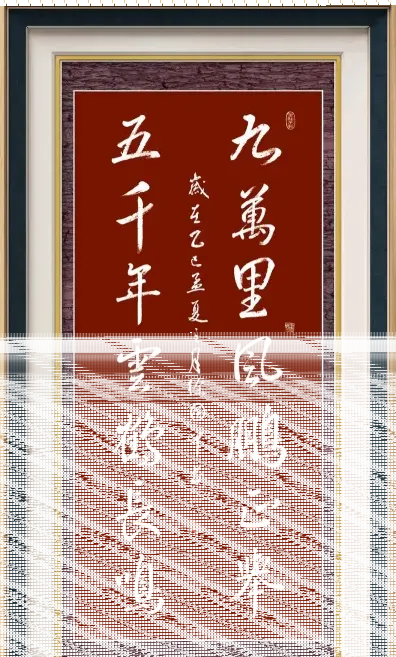 九萬里風鵬正舉
五千年雲鶴長鳴
歲在乙巳孟夏